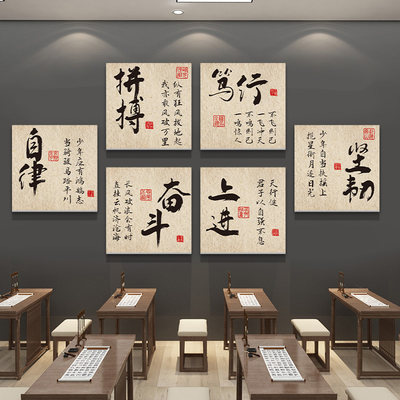 拼搏
纵有狂风拔地起
我亦乘风破万里
笃行
不飞则已
一飞冲天
不鸣则已
一鸣惊人
自律
少年应有鸿鹄志
当骑骏马踏平川
奋斗
长风破浪会有时
直挂云帆济沧海
上进
天行健
君子以自强不息
坚韧
少年自当扶摇上
揽星衔月逐日光